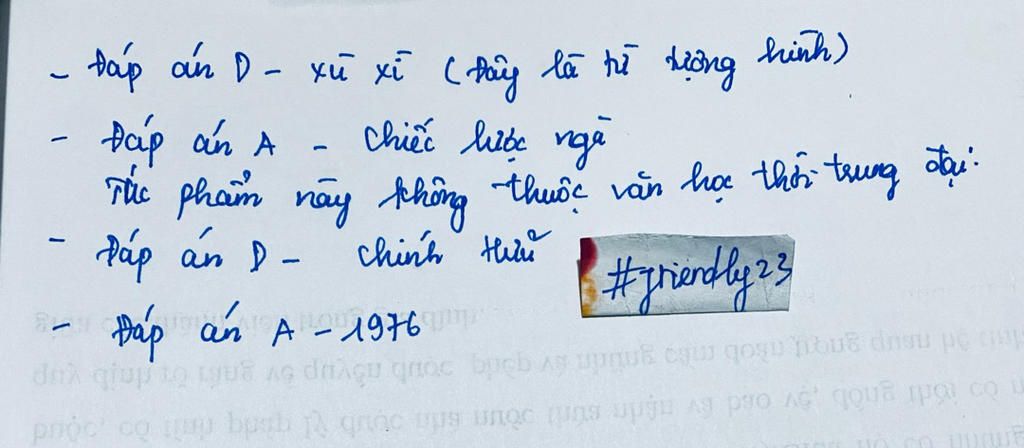 - Đáp án D - xù xì (Đây là từ tượng hình)
- Đáp án A - Chiếc lược ngà
Tác phẩm này không thuộc văn học thời trung đại.
- Đáp án D - Chính Hữu
#friendly23
- Đáp án A - 1976